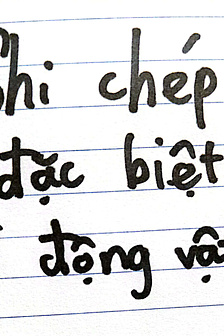 Ghi chép
đặc biệt
động vậ